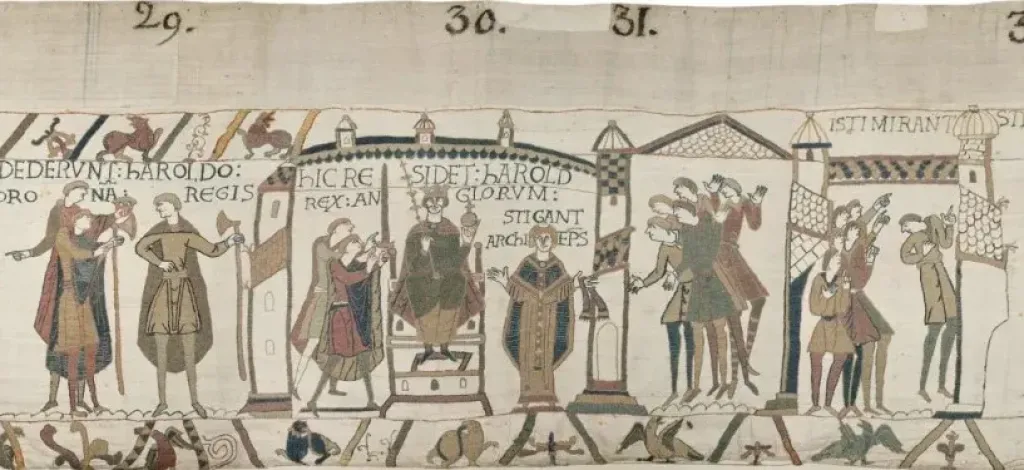 29.
30.
31.
3
DEDERVNT: hAROLDO:
ORO NA REGIS
hIC RE SIDET: hAROLD
REX: AN GLORVM:
STIGANT
ARChI EPS
ISTI MIRANT